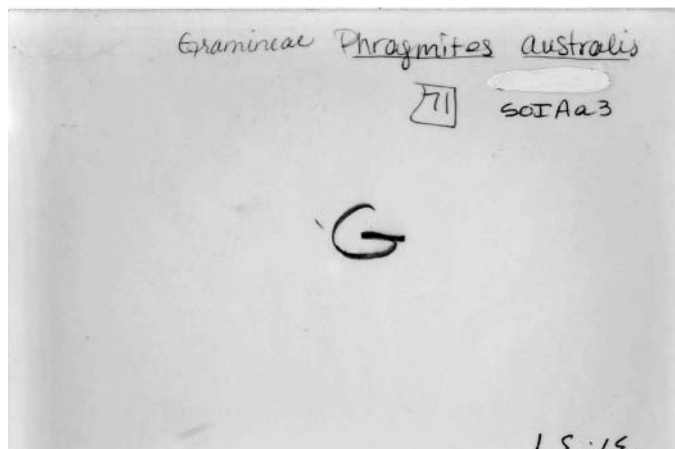 Gramineae Phragmites australis
71 SOIAa3
G